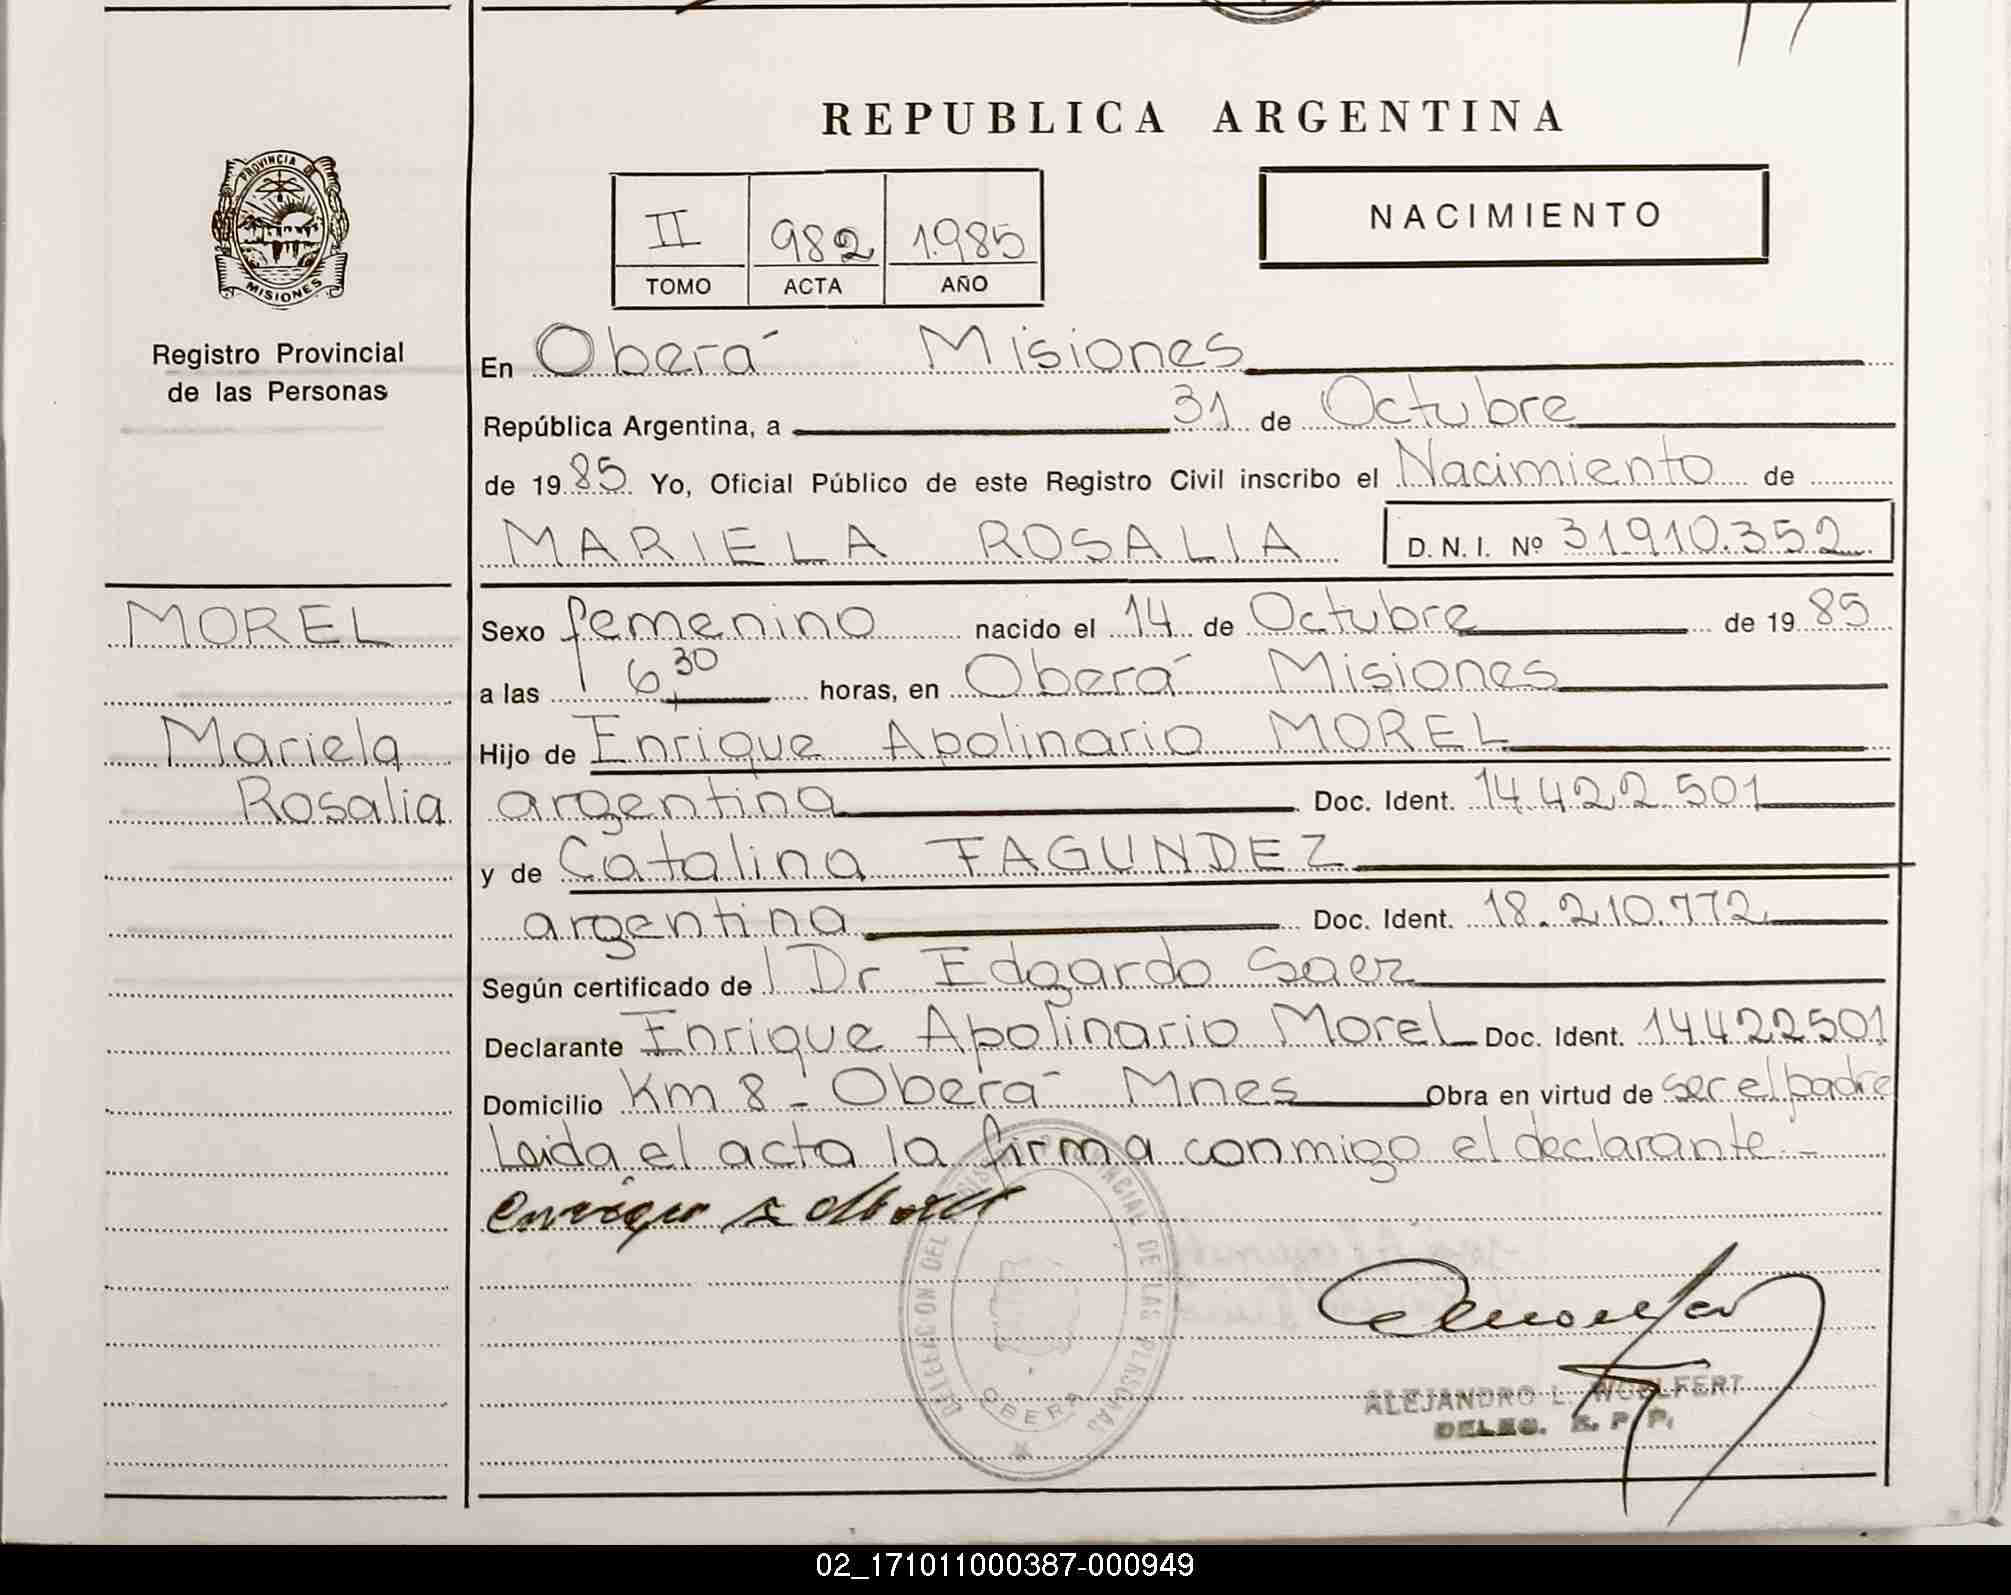 REPUBLICA ARGENTINA
PROVINCIA DE
MISIONES
Registro Provincial
de las Personas
II 982 1.985
TOMO ACTA AÑO
NACIMIENTO
En Oberá Misiones
República Argentina, a 31 de Octubre
de 19 85 Yo, Oficial Público de este Registro Civil inscribo el Nacimiento de
MARIELA ROSALIA D. N. I. Nº 31.910.352
MOREL
Mariela
Rosalia
Sexo femenino nacido el 14 de Octubre de 19 85
a las 6,30 horas, en Oberá Misiones
Hijo de Enrique Apolinario MOREL
argentina Doc. Ident. 14.422.501
y de Catalina FAGUNDEZ
argentina Doc. Ident. 18.210.772
Según certificado de Dr Edgardo Saez
Declarante Enrique Apolinario Morel Doc. Ident. 14.422.501
Domicilio Km 8 - Oberá Mnes Obra en virtud de ser el padre
Leida el acta la firma conmigo el declarante.-
DELEGACION DEL PROVINCIAL DE LAS PERSONAS
OBERA
ALEJANDRO L. WOELFERT
DELEG. R. P. P.
02_171011000387-000949